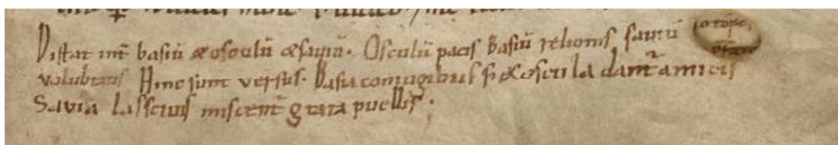 Distat int̄ basiū & osculū & saviū. Osculū pacis Basiū relionis saviū
voluptatis Hinc sunt versus. Basia coniugibus s; & oscula dant̄ amicis
Savia lasscivis miscent̄ grata puellis.